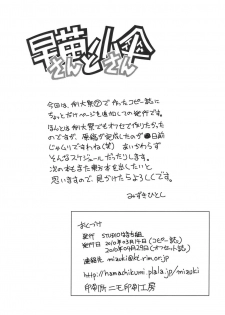 今回は、例大祭⑦で作ったコピー誌に
ちょっとだけページを追加しての発行です。
ほんとは例大祭でもオフセで作りたかった
のですが、原稿が完成したのが●日前
じゅんりですわね(笑) あいかわらず
そんなスケジュールだったりします。
次の本もまた東方本を出したいと
思いますので、見かけたらよろしくです。
みずきひとし
おくづけ
発行 STUDIOはまち組
発行日 2010年03月14日(コピー誌)
2010年09月29日(オフセット誌)
連絡先 mizoki@kt.rim.or.jp
http://hamachikumi.plala.jp/mizoki
印刷所 ニモ印刷工房